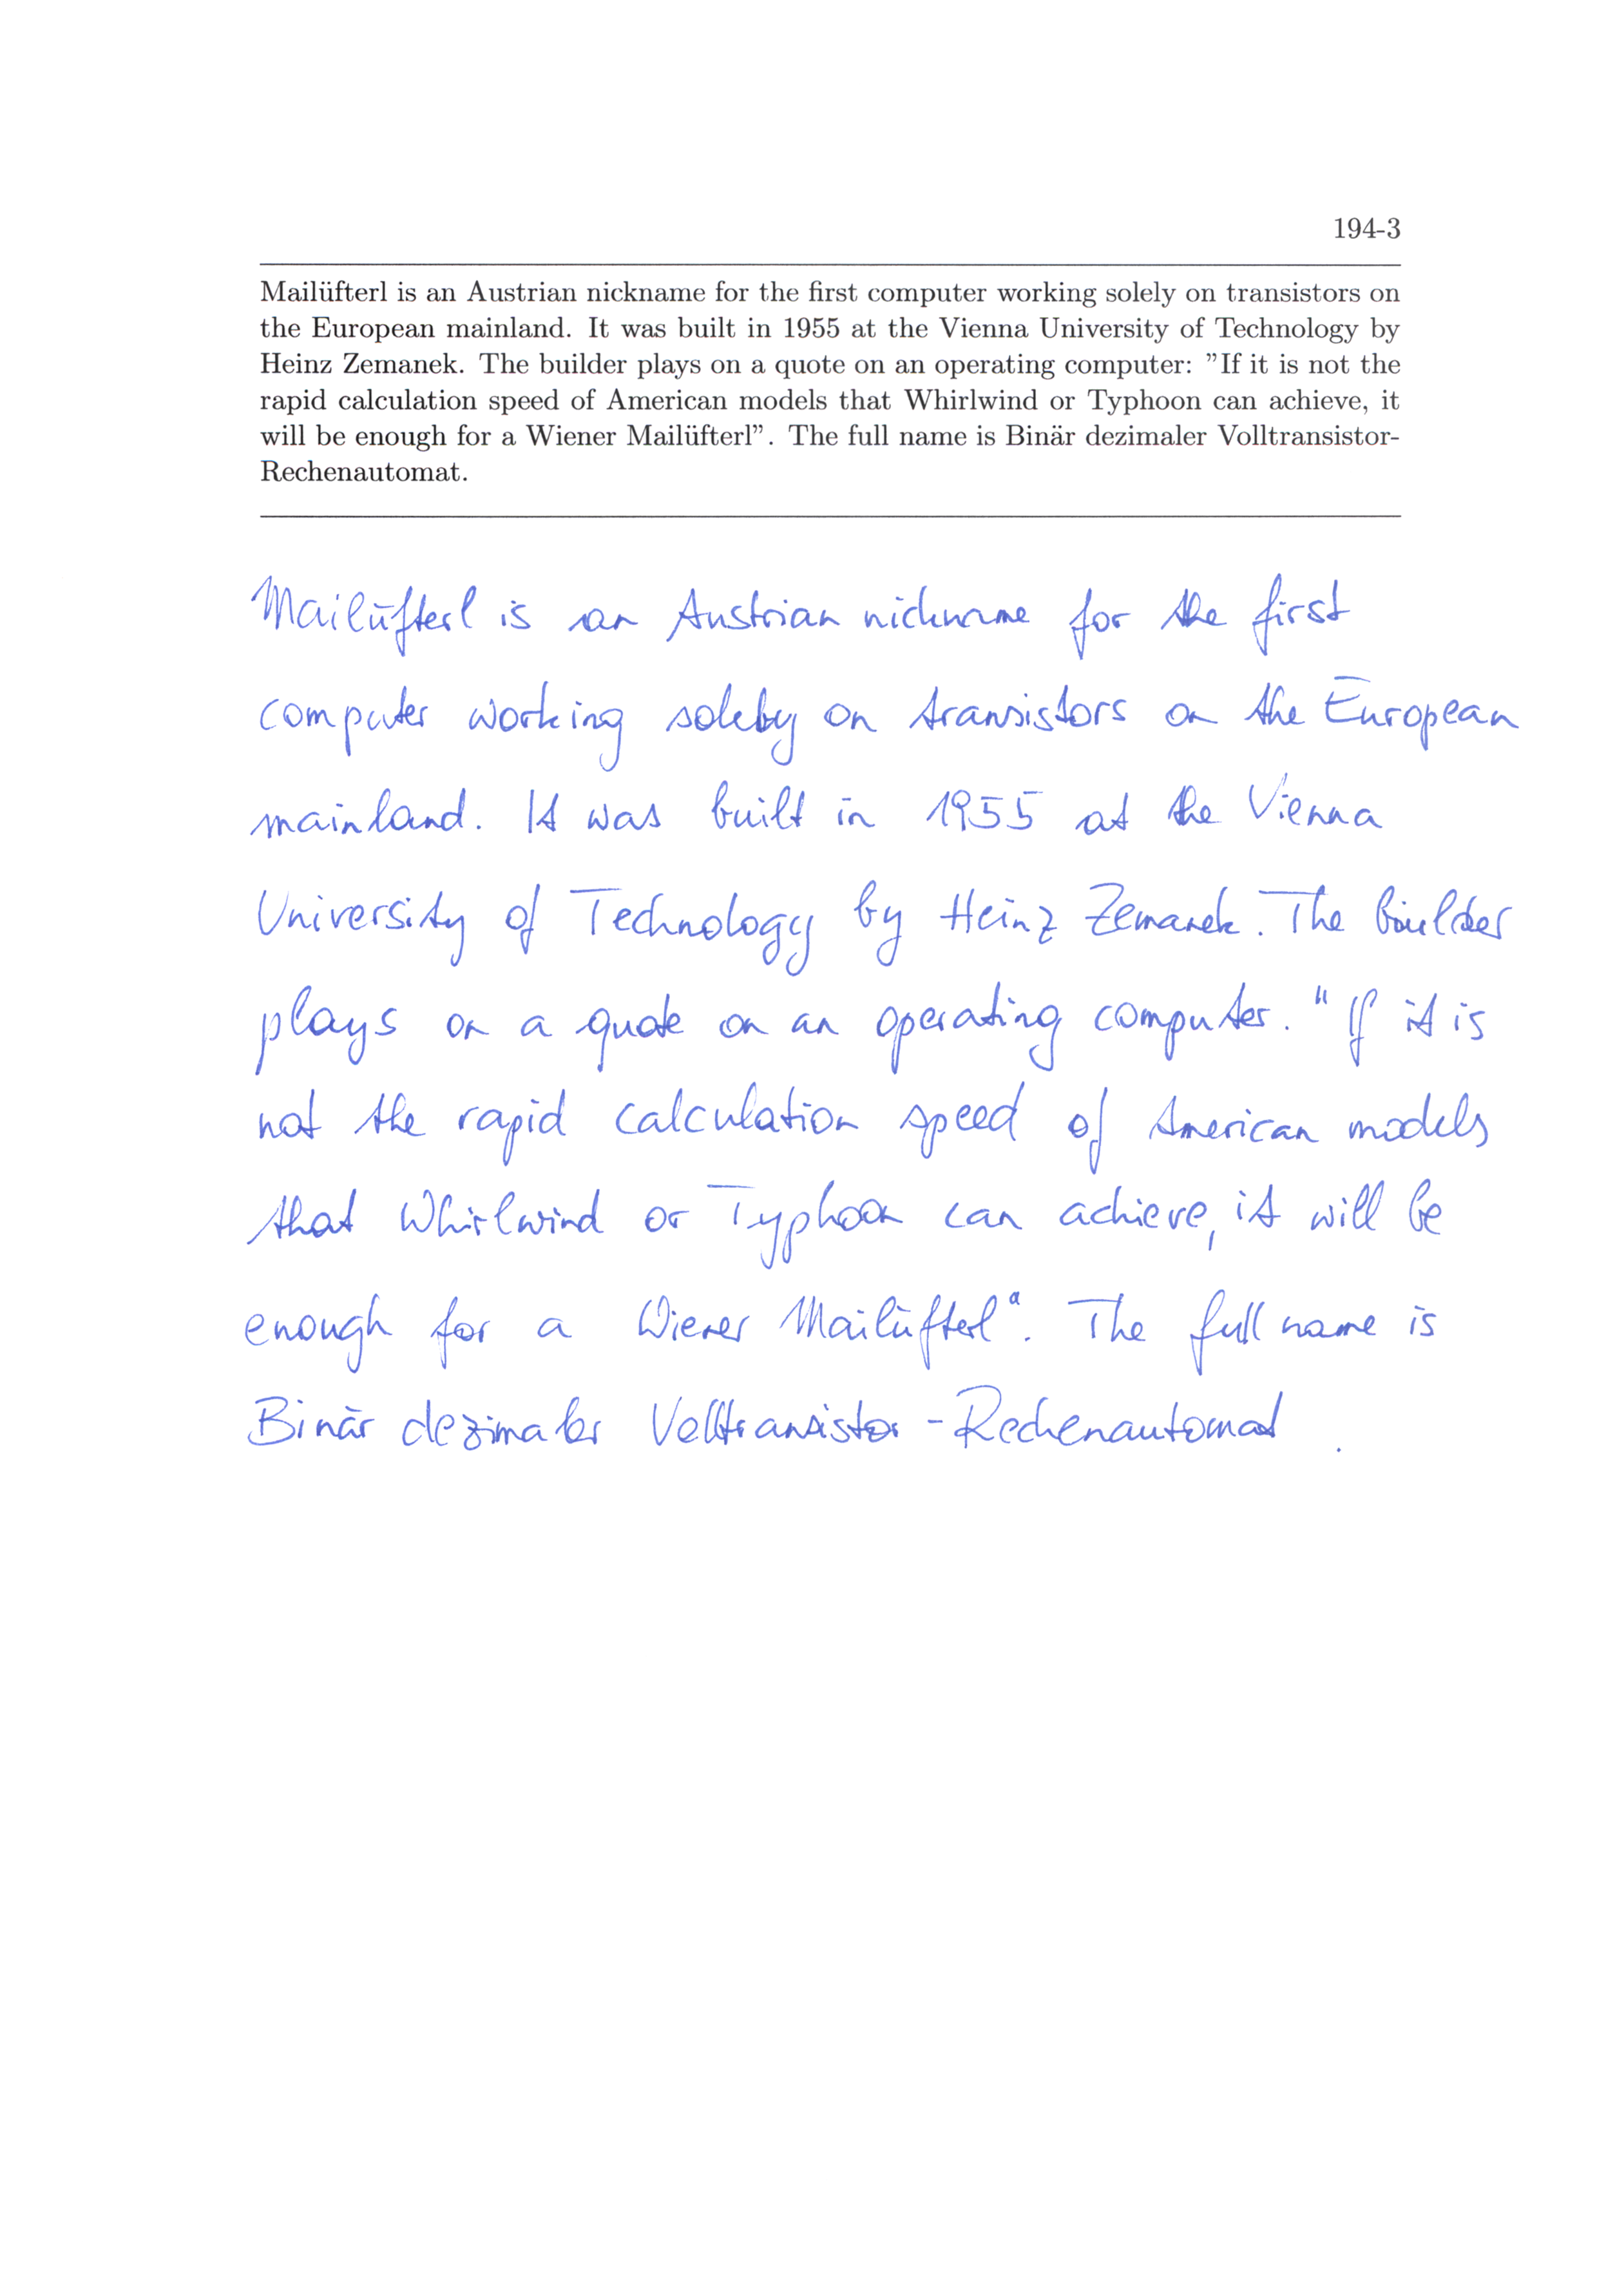 194-3
Mailüfterl is an Austrian nickname for the first computer working solely on transistors on
the European mainland. It was built in 1955 at the Vienna University of Technology by
Heinz Zemanek. The builder plays on a quote on an operating computer: ”If it is not the
rapid calculation speed of American models that Whirlwind or Typhoon can achieve, it
will be enough for a Wiener Mailüfterl”. The full name is Binär dezimaler Volltransistor-
Rechenautomat.
Mailüfterl is an Austrian nickname for the first
computer working solely on transistors on the European
mainland. It was built in 1955 at the Vienna
University of Technology by Heinz Zemanek. The builder
plays on a quote on an operating computer. "If it is
not the rapid calculation speed of American models
that Whirlwind or Typhoon can achieve, it will be
enough for a Wiener Mailüfterl". The full name is
Binär dezimaler Volltransistor-Rechenautomat.